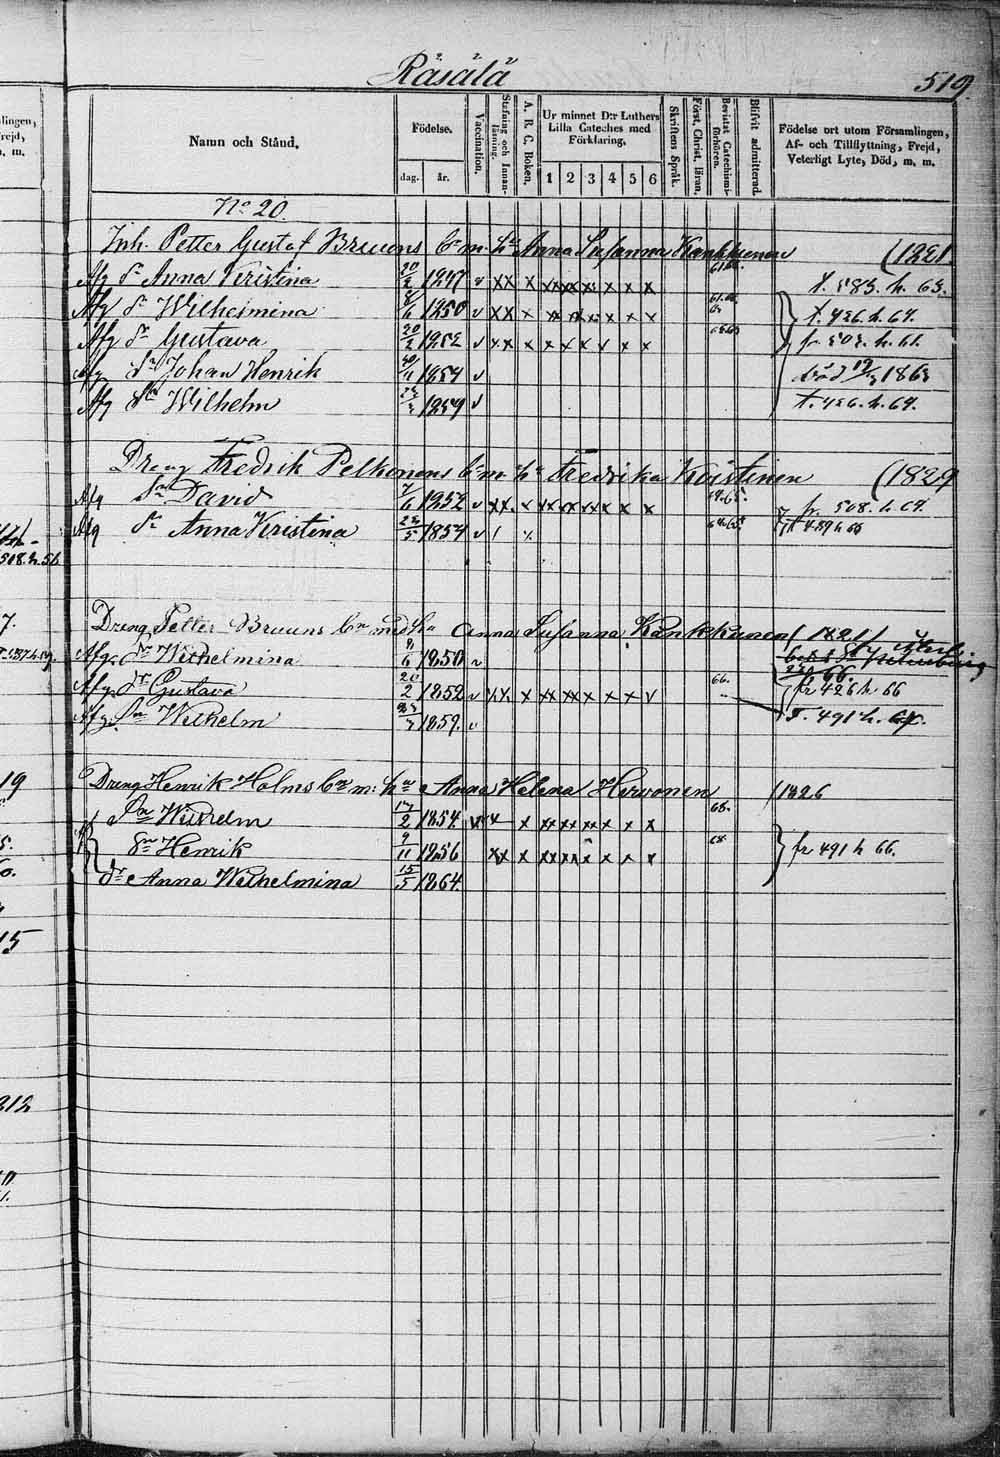 Räsälä
519.
Namn och Stånd.
Födelse.
dag.
år.
Vaccination.
Stafning och Innan-läsning.
A. B. C. Boken.
Ur minnet D:r Luthers
Lilla Cateches med
Förklaring.
1 2 3 4 5 6
Skriftens Språk.
Först. Christ. läran.
Bevistat Catechismi-förhören.
Blifvit admitterad.
Födelse ort utom Församlingen,
Af- och Tillflyttning, Frejd,
Veterligt Lyte, Död, m. m.
No 20.
Inh. Petter Gustaf Bruuns bn m. hu Anna Susanna Kankkunen (1821)
Afg dr Anna Kristina 20/2 1847 v xx x xx xx xx x x x t. 583. h. 63.
Afg dr Wilhelmina 8/6 1850 v xx x xx xx xx x x x t. 426. h. 67.
Afg dr Gustava 20/2 1852 v xx x x x x x x x fr 503. h. 61.
Afg Sn Johan Henrik 1854 v död 19/3 1863
Afg Sn Wilhelm 1859 v t. 426. h. 67.
Dreng Fredrik Pelkonens bn m. hu Fredrika Koistinen (1829
Afg Sn David 7/6 1852 v xx. x xx xx xx x x x fr. 508. h. 67.
Afg dr Anna Kristina 23/5 1854 v
Dreng Petter Bruuns bn med hu Anna Susanna Kankkunen (1821)
Afg. dr Wilhelmina 8/6 1850 v
Afg. dr Gustava 20/2 1852 v xx. x x xx x x x v 66. fr 426 h 66
Afg. Sn Wilhelm 23/3 1859. v T. 491 h.
Dreng Henrik Holms bn m: hu Anna Helena Hirvonen 1826
Sn Wilhelm 17/2 1854. x xx xx xx x x x 68.
Sn Henrik 9/11 1856 xx x xx xx x x x x 68 fr 491 h 66.
dr Anna Wilhelmina 15/5 1864